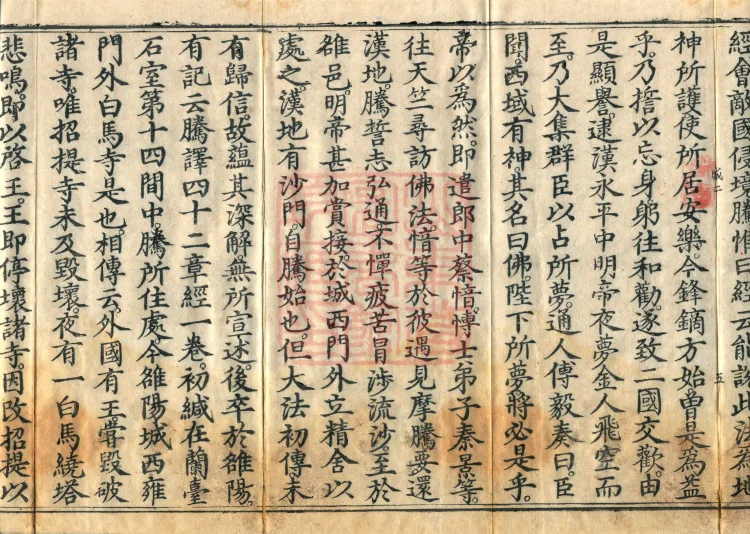 經會敵國侵境騰惟曰經云能說此法為地
神所護使所居安樂今鋒鏑方始曾是為益
乎乃誓以忘身躬往和勸遂致二國交歡由
是顯譽逮漢永平中明帝夜夢金人飛空而
至乃大集群臣以占所夢通人傅毅奏曰臣
聞西域有神其名曰佛陛下所夢將必是乎
帝以為然即遣郎中蔡愔博士弟子秦景等
往天竺尋訪佛法愔等於彼遇見摩騰要還
漢地騰誓志弘通不憚疲苦冒涉流沙至於
雒邑明帝甚加賞接於城西門外立精舍以
處之漢地有沙門自騰始也但大法初傳未
有歸信故蘊其深解無所宣述後卒於雒陽
有記云騰譯四十二章經一卷初緘在蘭臺
石室第十四間中騰所住處今雒陽城西雍
門外白馬寺是也相傳云外國有王嘗毀破
諸寺唯招提寺未及毀壞夜有一白馬繞塔
悲鳴即以啓王王即停壞諸寺因改招提以
五